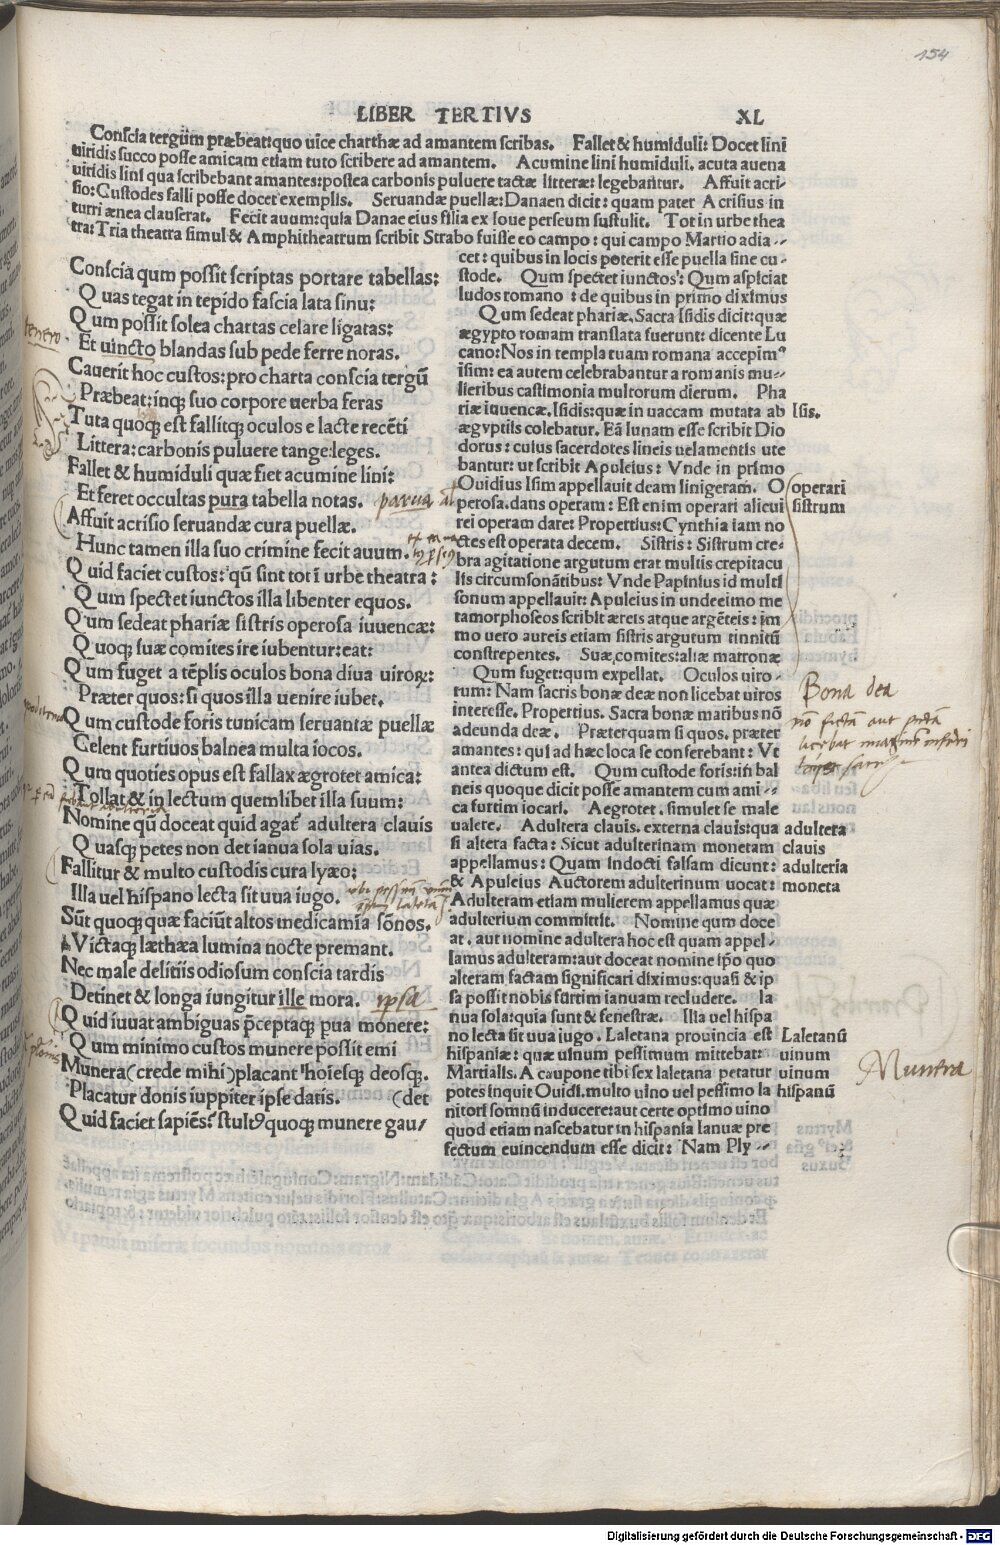 154
LIBER TERTIVS XL
Conscia tergum præbeat:quo uice charthæ ad amantem scribas. Fallet & humiduli: Docet lini
uiridis succo posse amicam etiam tuto scribere ad amantem. Acumine lini humiduli. acuta auena
uiridis lini qua scribebant amantes:postea carbonis puluere tactæ litteræ: legebantur. Affuit acri-
sio: Custodes falli posse docet exemplis. Seruandæ puellæ: Danaen dicit: quam pater Acrisius in
turri ænea clauserat. Fecit auum: quia Danae eius filia ex Ioue perseum sustulit. Tot in urbe thea
tra: Tria theatra simul & Amphitheatrum scribit Strabo fuisse eo campo: qui campo Martio adia--
Conscia qum possit scriptas portare tabellas:
Quas tegat in tepido fascia lata sinu:
Qum possit solea chartas celare ligatas:
Et uincto blandas sub pede ferre noras.
Cauerit hoc custos: pro charta conscia tergū
Præbeat: inq; suo corpore uerba feras
Tuta quoq; est fallitq; oculos e lacte recēti
Littera: carbonis puluere tange: leges.
Fallet & humiduli quæ fiet acumine lini:
Et feret occultas pura tabella notas. parua
Affuit acrisio seruandæ cura puellæ.
Hunc tamen illa suo crimine fecit auum.
Quid faciet custos: qū sint tot ī urbe theatra:
Qum spectet iunctos illa libenter equos.
Qum sedeat phariæ sistris operosa iuuencæ:
Quoq; suæ comites ire iubentur: eat:
Qum fuget a tēplis oculos bona diua uiroꝝ:
Præter quos: si quos illa uenire iubet.
Qum custode foris tunicam seruantæ puellæ
Celent furtiuos balnea multa iocos.
Qum quoties opus est fallax ægrotet amica:
Tollat & in lectum quemlibet illa suum:
Nomine qū doceat quid agat' adultera clauis
Quasq; petes non det ianua sola uias.
Fallitur & multo custodis cura lyæo:
Illa uel hispano lecta sit uua iugo.
Sūt quoq; quæ faciūt altos medicamīa sōnos.
Victaq; læthæa lumina nocte premant.
Nec male delitiis odiosum conscia tardis
Detinet & longa iungitur ille mora. ipsa
Quid iuuat ambiguas p̄ceptaq; pua monere:
Qum minimo custos munere possit emi
Munera (crede mihi) placant' hoiesq; deosq.
Placatur donis iuppiter ipse datis. (det
Quid faciet sapiēs: stultꝯ quoq; munere gau/
cet: quibus in locis poterit esse puella sine cu-
stode. Qum spectet iunctos: Qum aspiciat
ludos romano: de quibus in primo diximus
Qum sedeat phariæ. Sacra Isidis dicit: quæ
ægypto romam translata fuerunt: dicente Lu
cano: Nos in templa tuam romana accepimꝰ
isim: ea autem celebrabantur a romanis mu--
lieribus castimonia multorum dierum. Pha
riæ iuuencæ. Isidis: quæ in uaccam mutata ab
ægyptiis colebatur. Eā lunam esse scribit Dio
dorus: cuius sacerdotes lineis uelamentis ute
bantur: ut scribit Apuleius: Vnde in primo
Ouidius Isim appellauit deam linigeram. O
perosa. dans operam: Est enim operari alicui
rei operam dare: Propertius: Cynthia iam no
ctes est operata decem. Sistris: Sistrum cre-
bra agitatione argutum erat multis crepitacu
lis circumsonātibus: Vnde Papinius id multi
sonum appellauit: Apuleius in undecimo me
tamorphoseos scribit æreis atque argēteis: im
mo uero aureis etiam sistris argutum tinnitū
constrepentes. Suæ comites: aliæ matronæ
Qum fuget: qum expellat. Oculos uiro-
rum: Nam sacris bonæ deæ non licebat uiros
interesse. Propertius. Sacra bonæ maribus nō
adeunda deæ. Præterquam si quos. præter
amantes: qui ad hæc loca se conferebant: Vt
antea dictum est. Qum custode foris: in bal
neis quoque dicit posse amantem cum ami--
ca furtim iocari. Aegrotet. simulet se male
ualere. Adultera clauis. externa clauis: qua
si altera facta: Sicut adulterinam monetam
appellamus: Quam indocti falsam dicunt:
& Apuleius Auctorem adulterinum uocat:
Adulteram etiam mulierem appellamus quæ
adulterium committit. Nomine qum doce
at. aut nomine adultera hoc est quam appel-
lamus adulteram: aut doceat nomine ip̄o quo
alteram factam significari diximus: quasi & ip
sa possit nobis furtim ianuam recludere. Ia
nua sola: quia sunt & fenestræ. Illa uel hispa
no lecta sit uua iugo. Laletana prouincia est
hispaniæ: quæ uinum pessimum mittebat:
Martialis. A caupone tibi fex laletana petatur
potes inquit Ouidi. multo uino uel pessimo la
nitori somnū inducere: aut certe optimo uino
quod etiam nascebatur in hispania Ianuæ pre
fectum euincendum esse dicit: Nam Ply--
Isis.
operari
sistrum
Bona dea
adultera
clauis
adulteria
moneta
Laletanū
uinum
uinum
hispanū
Munera
Digitalisierung gefördert durch die Deutsche Forschungsgemeinschaft - DFG